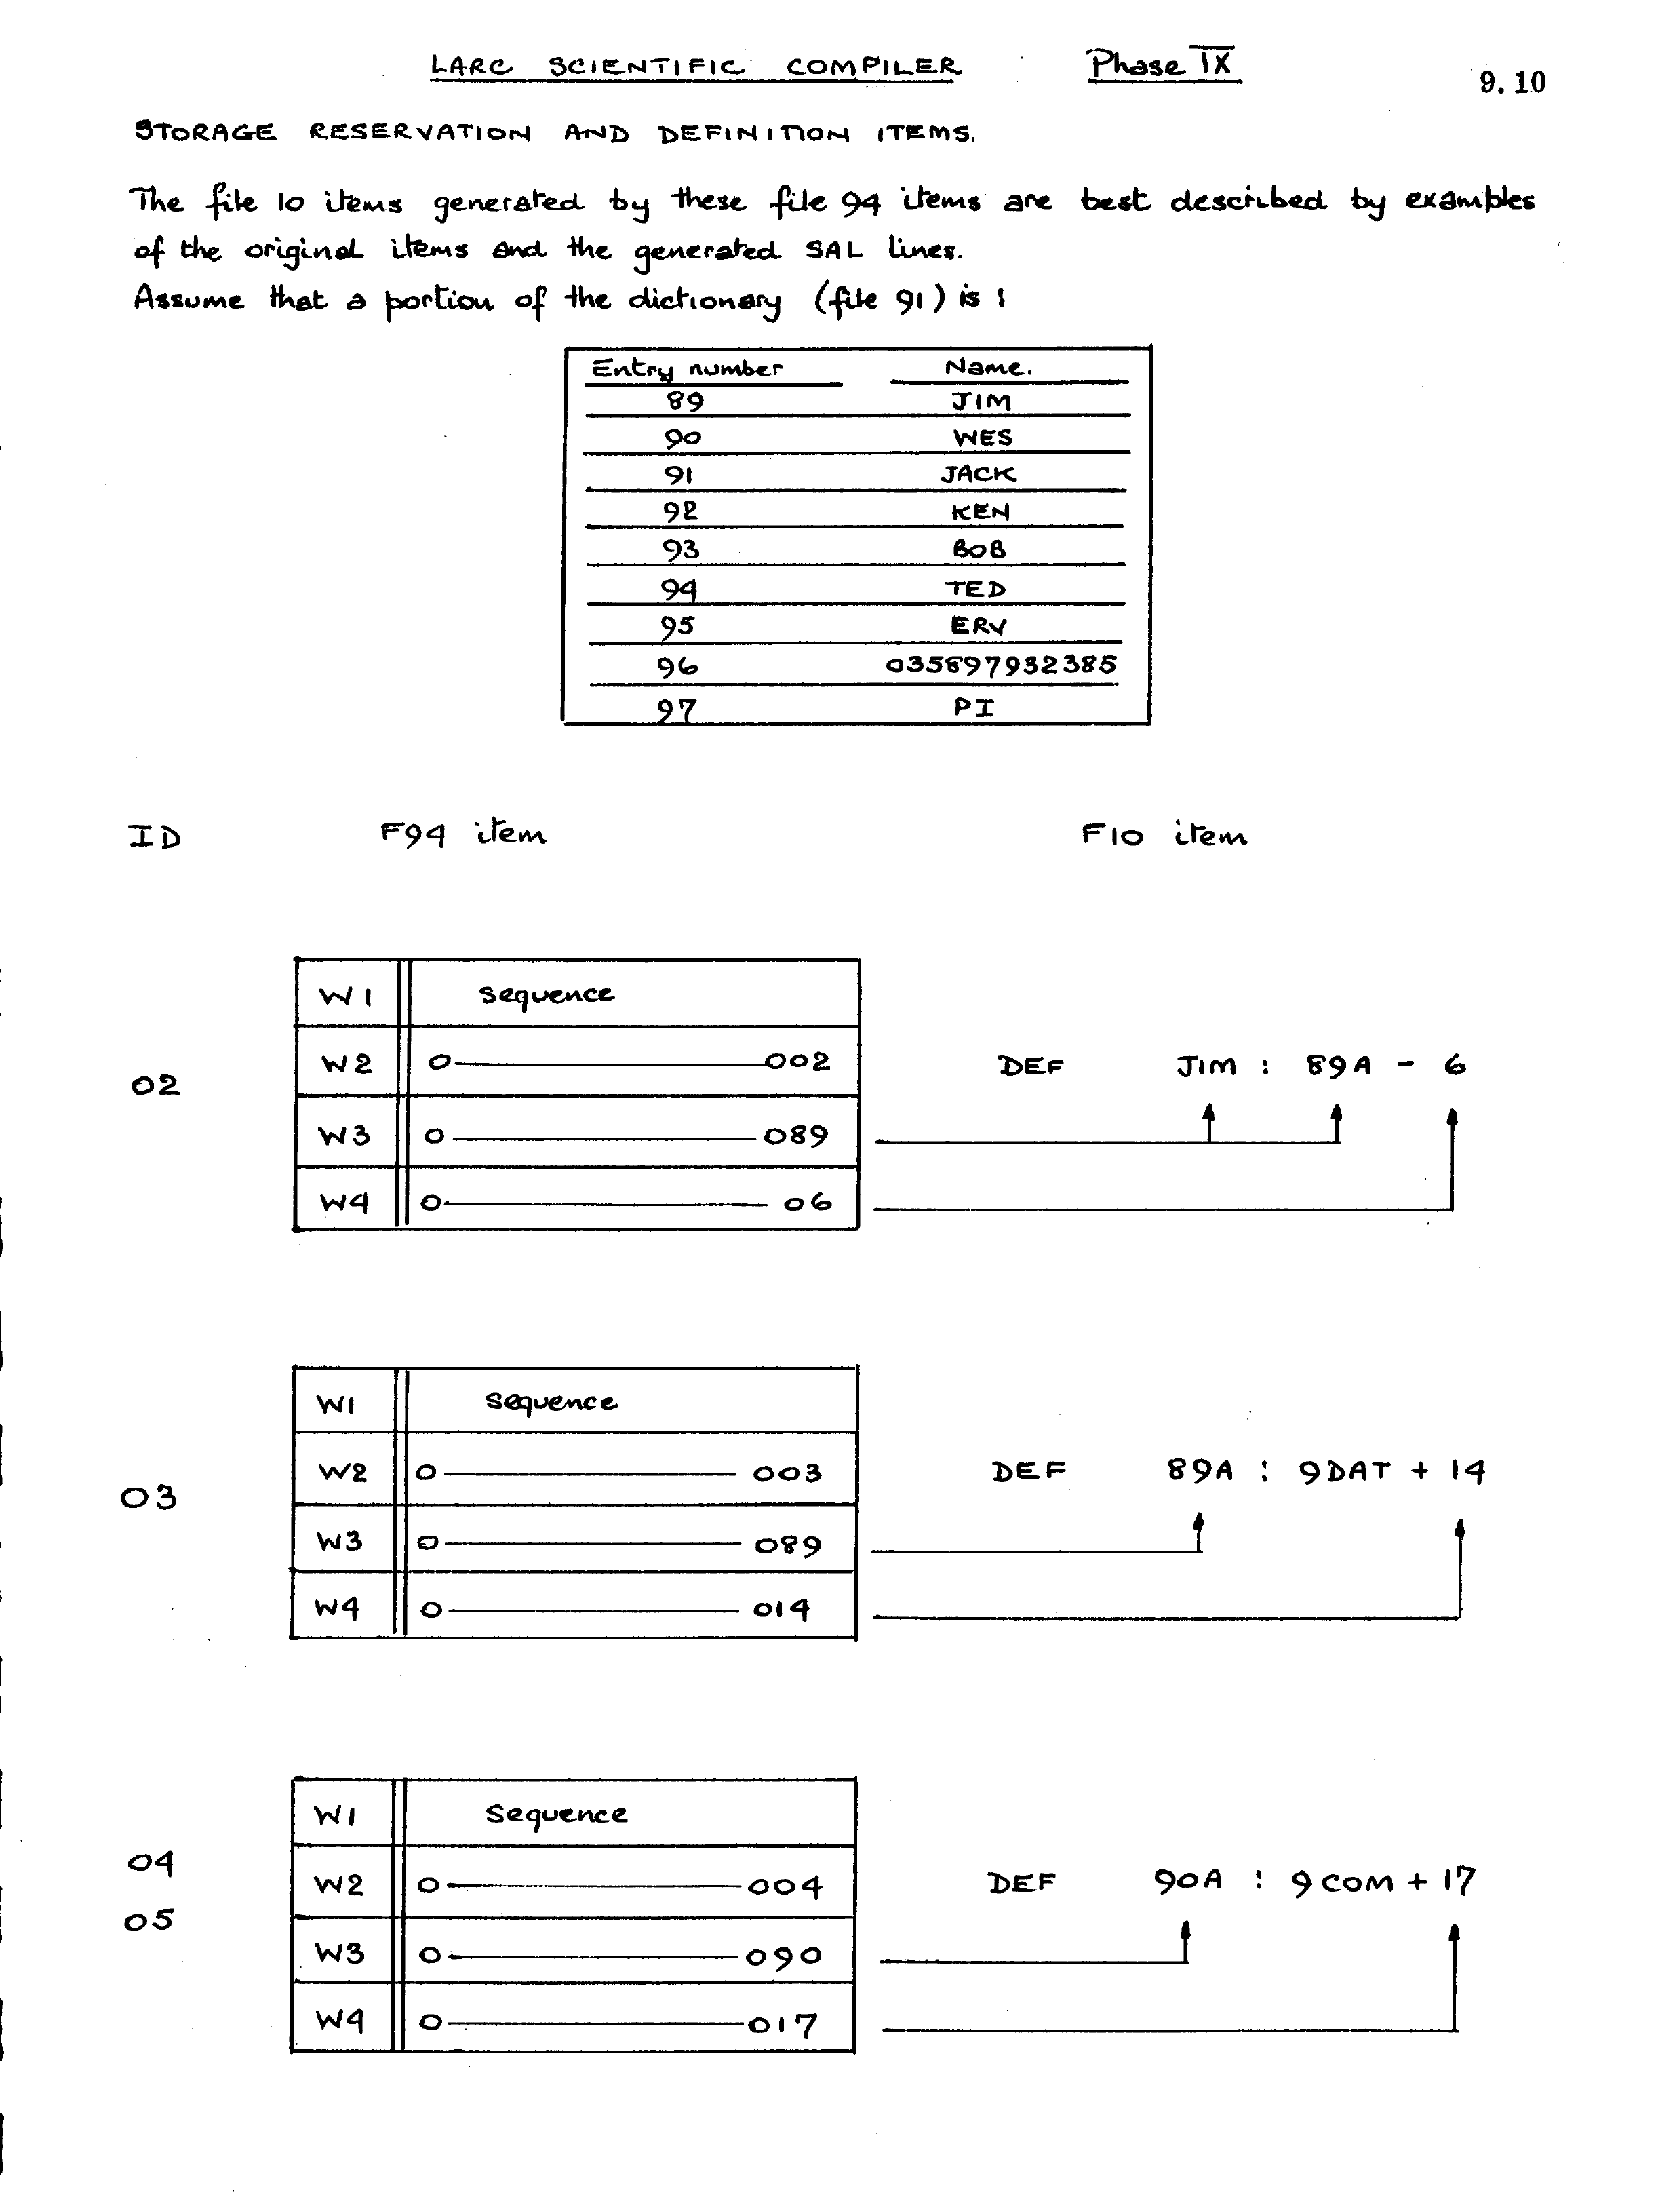 LARC SCIENTIFIC COMPILER Phase IX
9.10
STORAGE RESERVATION AND DEFINITION ITEMS.
The file 10 items generated by these file 94 items are best described by examples
of the original items and the generated SAL lines.
Assume that a portion of the dictionary (file 91) is :
Entry number Name.
89 JIM
90 WES
91 JACK
92 KEN
93 BOB
94 TED
95 ERV
96 035897932385
97 PI
ID F94 item F10 item
W1 sequence
02
W2 0————002 DEF JIM : 89A - 6
W3 0————089
W4 0————06
W1 sequence
03
W2 0————003 DEF 89A : 9DAT + 14
W3 0————089
W4 0————014
W1 sequence
04
05
W2 0————004 DEF 90A : 9COM + 17
W3 0————090
W4 0————017